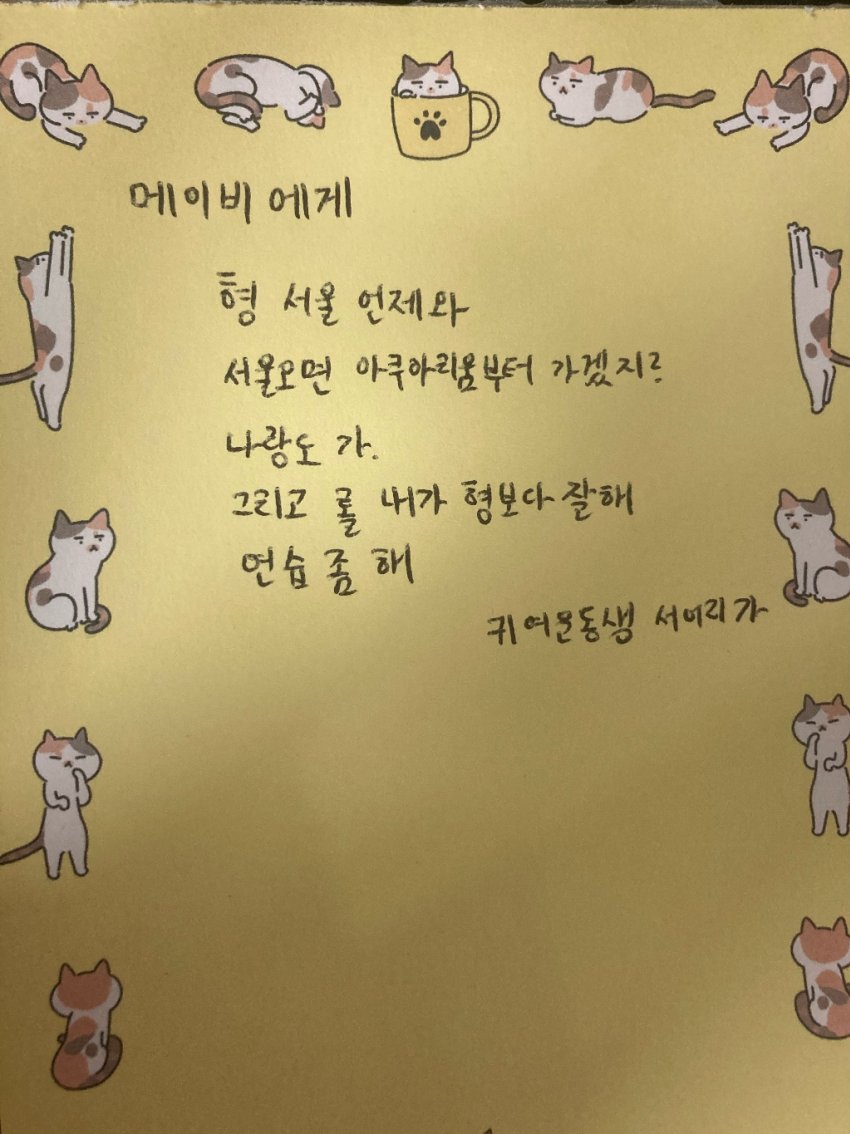 메이비에게
형 서울 언제와
서울오면 아쿠아리움부터 가겠지?
나랑도 가.
그리고 롤 내가 형보다 잘해
연습 좀 해
귀여운동생 서어리가